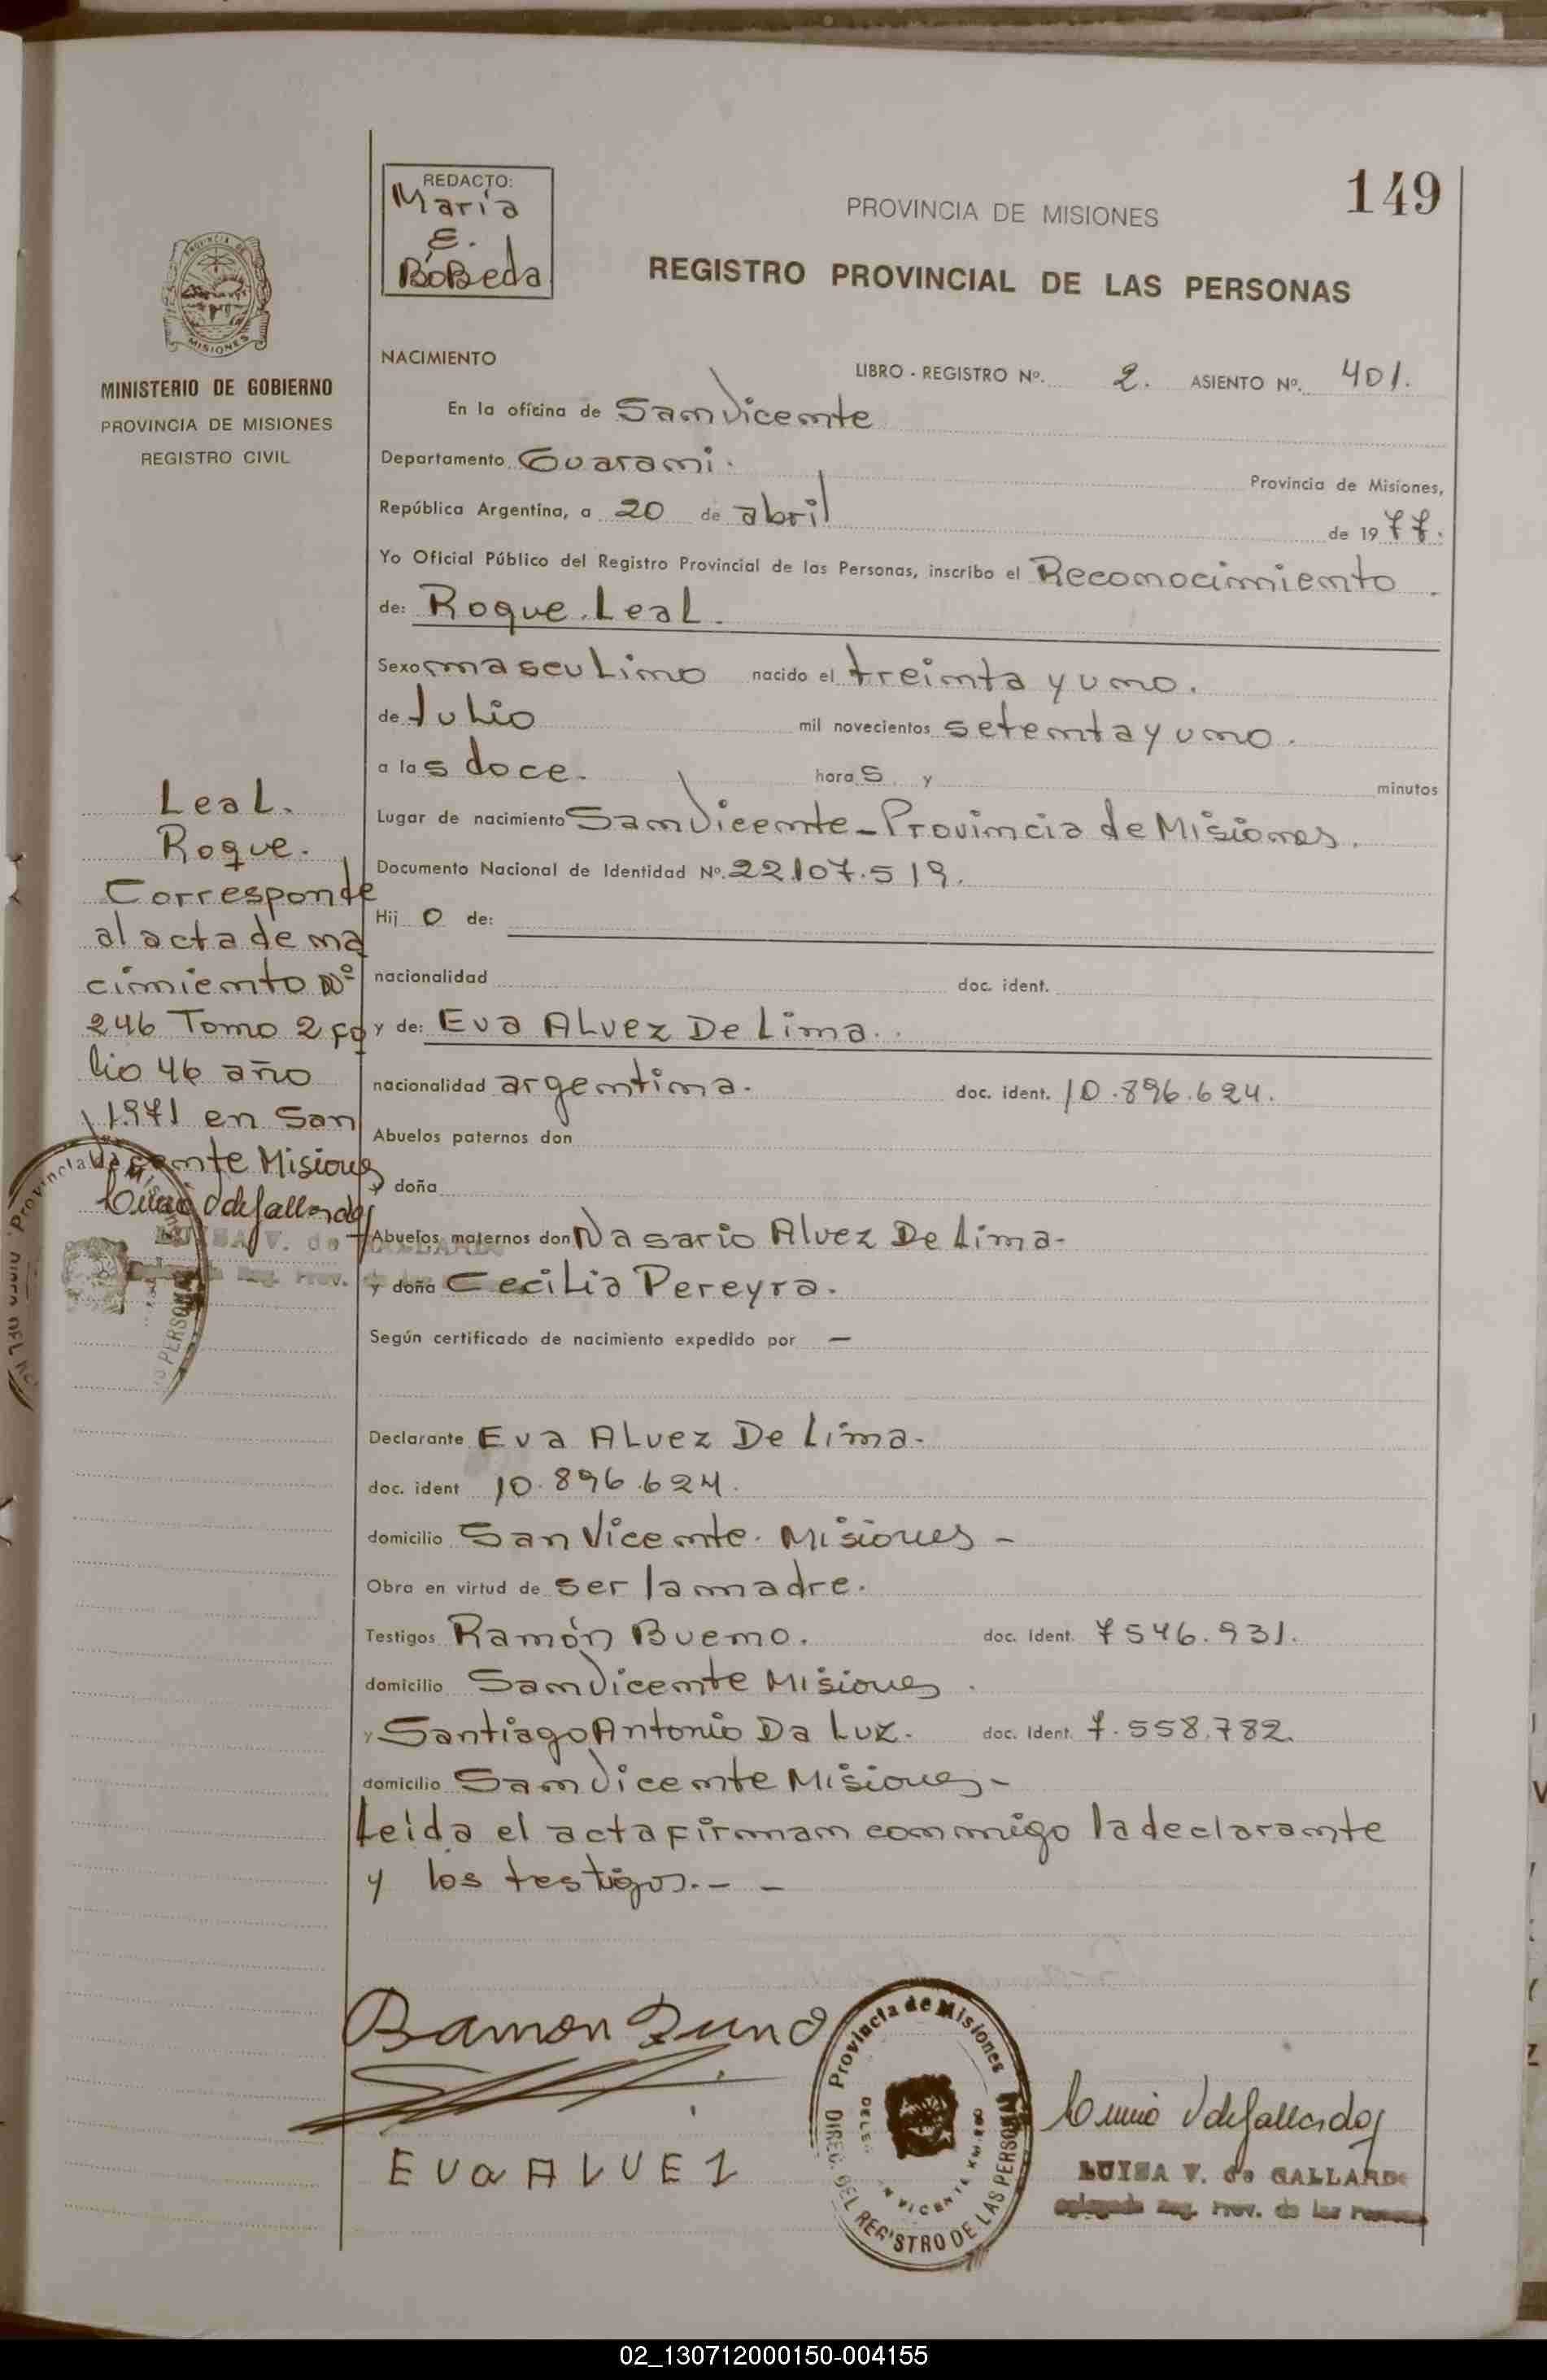 149
REDACTO:
María
E.
BóBeda
PROVINCIA DE MISIONES
REGISTRO PROVINCIAL DE LAS PERSONAS
PROVINCIA DE
MISIONES
MINISTERIO DE GOBIERNO
PROVINCIA DE MISIONES
REGISTRO CIVIL
NACIMIENTO
LIBRO - REGISTRO Nº. 2. ASIENTO Nº. 401.
En la oficina de San Vicente
Departamento Guarani. Provincia de Misiones,
República Argentina, a 20 de abril de 1977.
Yo Oficial Público del Registro Provincial de las Personas, inscribo el Reconocimiento.
de: Roque Leal.
Sexo masculino nacido el treinta y uno.
de Julio mil novecientos setenta y uno.
a las doce. horas y minutos
Lugar de nacimiento San Vicente - Provincia de Misiones.
Documento Nacional de Identidad Nº. 22.107.519.
Hijo de:
nacionalidad doc. ident.
y de: Eva Alvez De Lima.
nacionalidad argentina. doc. ident. 10.896.624.
Abuelos paternos don
y doña
Abuelos maternos don Nasario Alvez De Lima-
y doña Cecilia Pereyra.
Según certificado de nacimiento expedido por —
Declarante Eva Alvez De Lima.
doc. ident 10.896.624.
domicilio San Vicente. Misiones -
Obra en virtud de ser la madre.
Testigos Ramón Bueno. doc. Ident. 7546.931.
domicilio San Vicente Misiones.
y Santiago Antonio Da Luz. doc. Ident. 7.558.782.
domicilio San Vicente Misiones-
Leida el acta firman conmigo la declarante
y los testigos.- -
Leal.
Roque.
Corresponde
al acta de na
cimiento Nº
246 Tomo 2 fo
lio 46 año
1.971 en San
Vicente Misiones
LUISA V. de GALLARDO
Reg. Prov.
Ramon Bueno
EVa ALVEZ
Provincia de Misiones
DIREC. DEL REGISTRO DE LAS PERSONAS
LUISA V. de GALLARDO
Delegada Reg. Prov. de las Personas
02_130712000150-004155